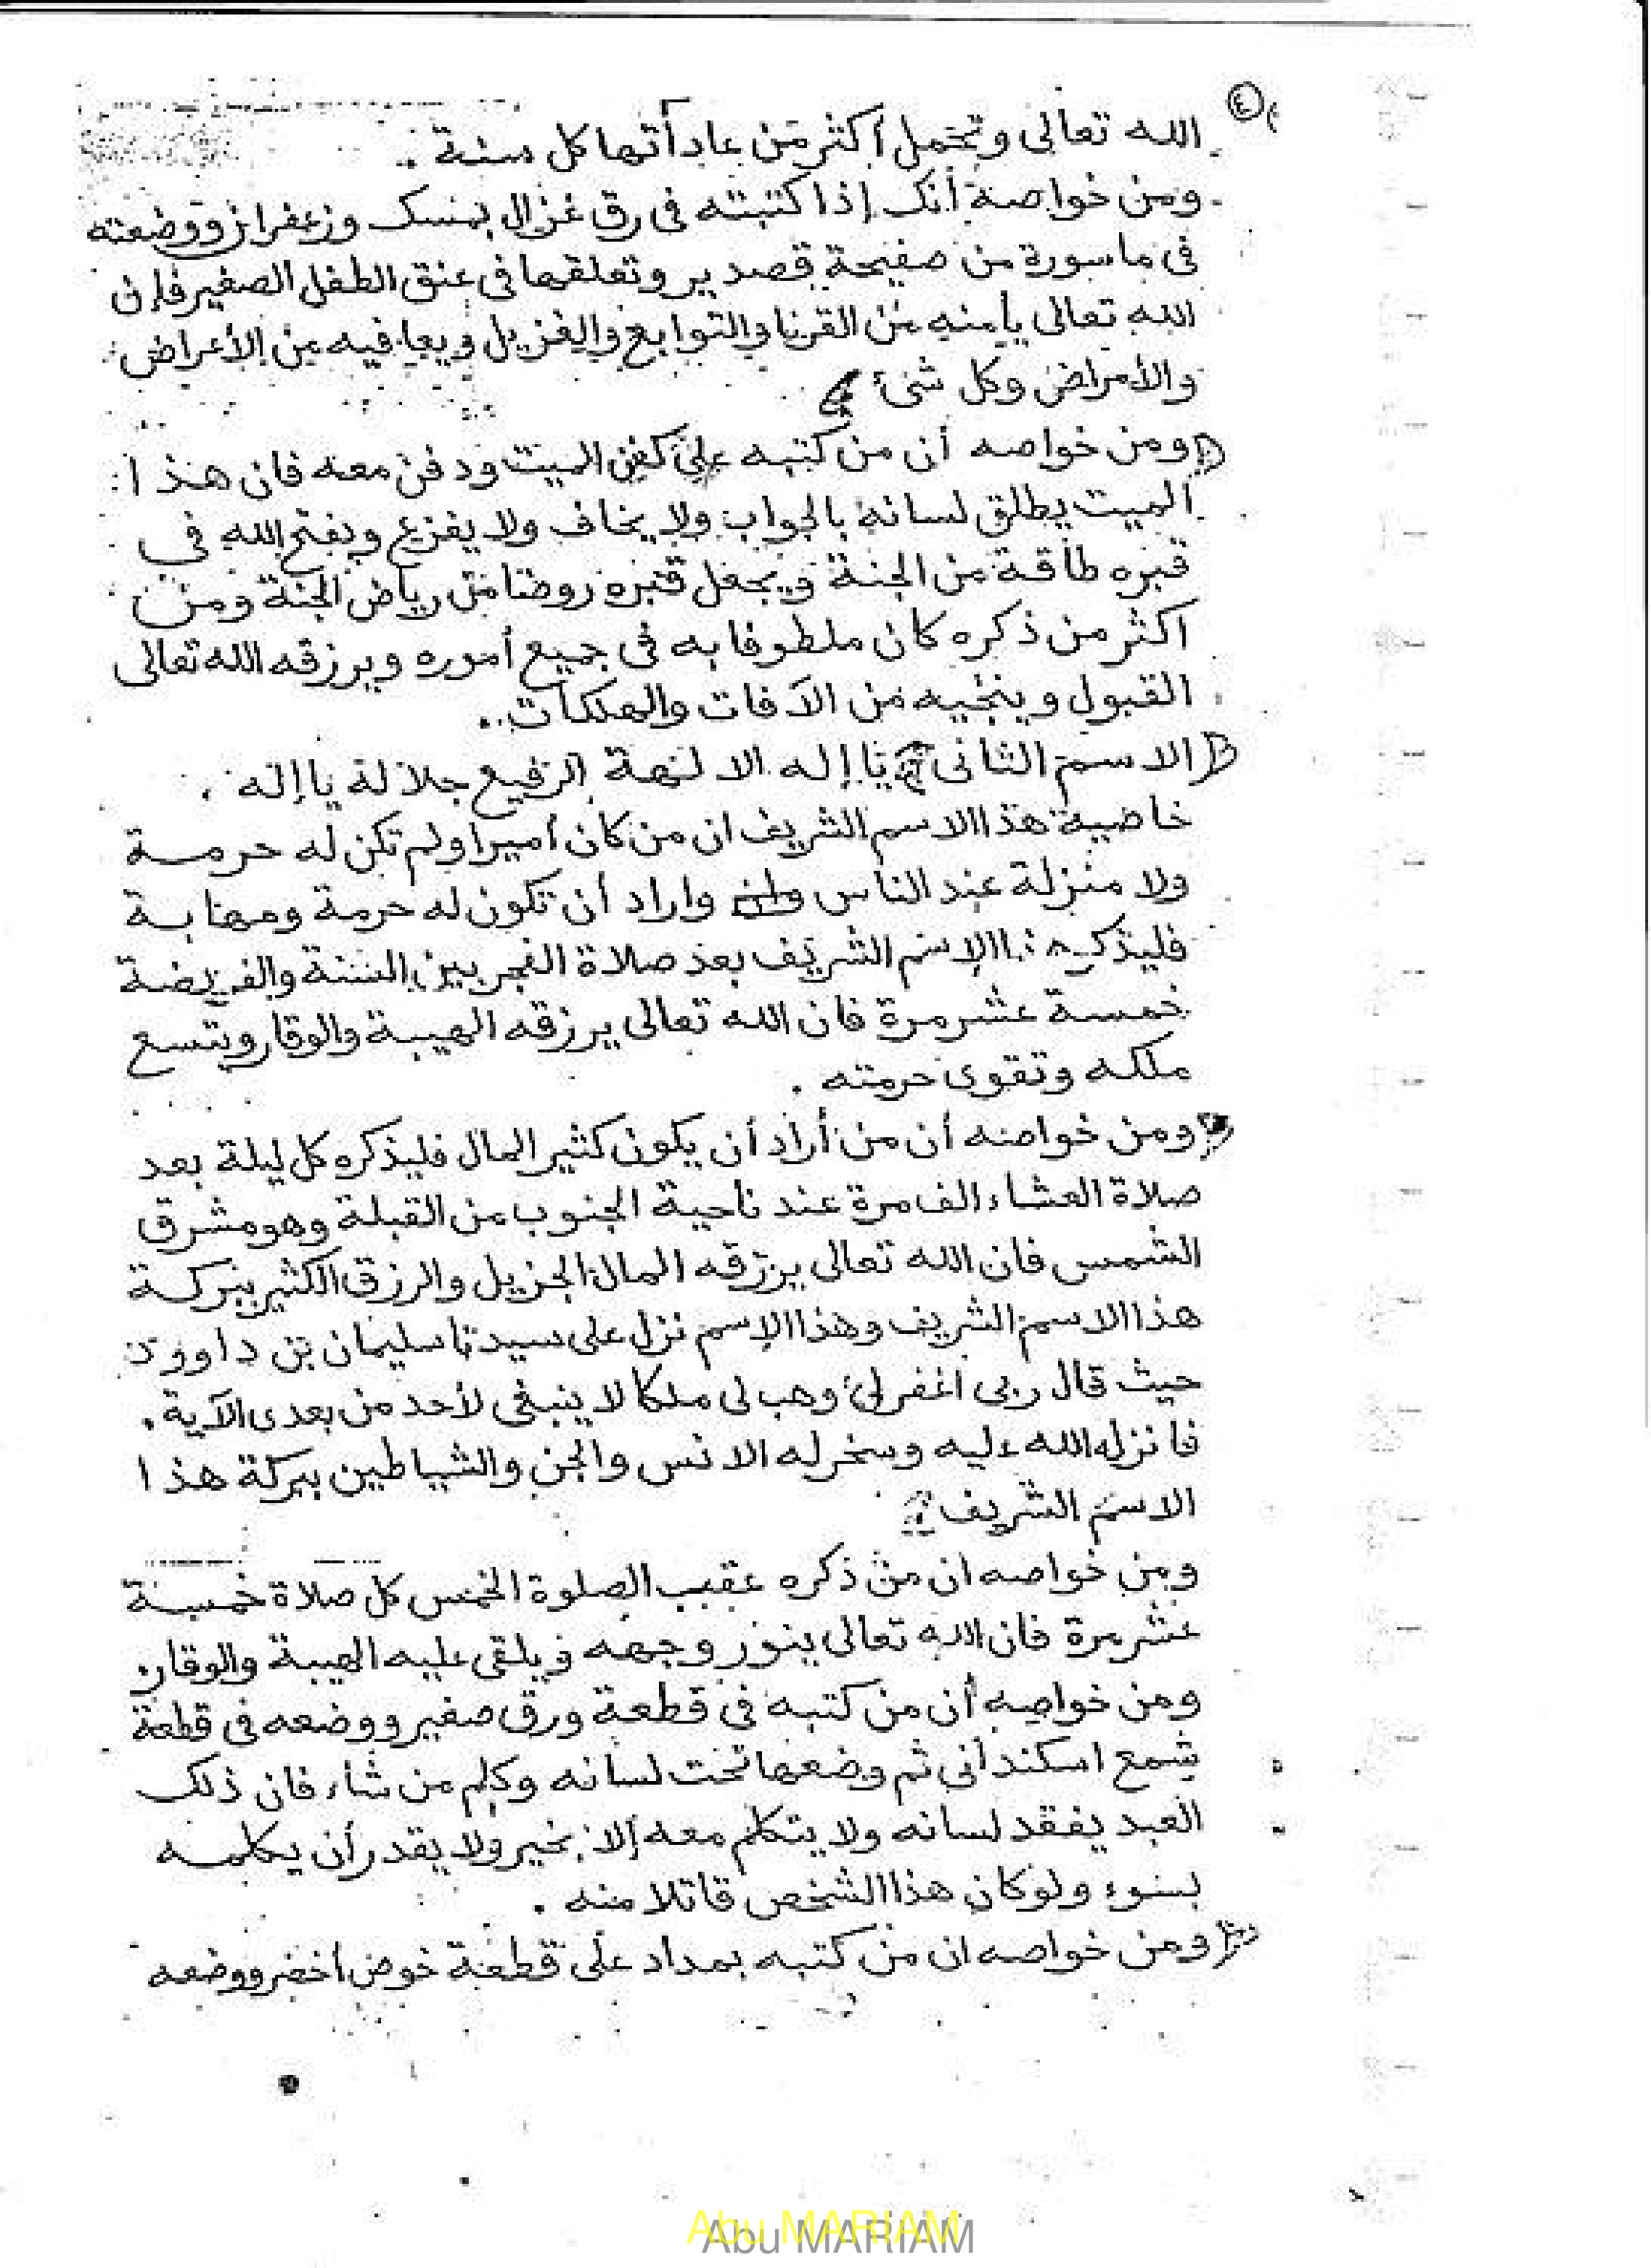 ٤
الله تعالى وتحمل أكثر من عادأتها كل سنة .
ومن خواصة أنك إذا كتبته فى رق غزال بمسك وزعفران ووضعته
فى ماسورة من صفيحة قصدير وتعلقها فى عنق الطفل الصغير فإن
الله تعالى يأمنه من القرنا والتوابع والغزيل ويعافيه من الأعراض
والأمراض وكل شئ
ومن خواصه أن من كتبه على كفن الميت ودفن معه فان هذا
الميت يطلق لسانه بالجواب ولا يخاف ولا يفزع ويفتح الله فى
قبره طاقة من الجنة ويجعل قبره روضا من رياض الجنة ومن
أكثر من ذكره كان ملطوفا به فى جميع أموره ويرزقه الله تعالى
القبول وينجيه من الآفات والهلكات .
الاسم الثانى يا إله الالهة الرفيع جلاله يا إله .
خاصية هذا الاسم الشريف ان من كان أميرا ولم تكن له حرمة
ولا منزلة عند الناس واراد أن تكون له حرمة ومهابة
فليذكر الإسم الشريف بعد صلاة الفجر بين السنة والفريضة
خمسة عشر مرة فان الله تعالى يرزقه الهيبة والوقار ويتسع
ملكه وتقوى حرمته .
ومن خواصه أن من أراد أن يكون كثير المال فليذكره كل ليلة بعد
صلاة العشاء الف مرة عند ناحية الجنوب من القبلة وهو مشرق
الشمس فان الله تعالى يرزقه المال الجزيل والرزق الكثير ببركة
هذا الاسم الشريف وهذا الإسم نزل على سيدنا سليمان بن داوود
حيث قال ربى اغفر لى وهب لى ملكا لا ينبغى لأحد من بعدى الآية .
فانزله الله عليه وسخر له الانس والجن والشياطين ببركة هذا
الاسم الشريف
ومن خواصه ان من ذكره عقب الصلوة الخمس كل صلاة خمسة
عشر مرة فان الله تعالى ينور وجهه ويلقى عليه الهيبة والوقار
ومن خواصه أن من كتبه فى قطعة ورق صغير ووضعه فى قطعة
شمع اسكندرانى ثم وضعها تحت لسانه وكلم من شاء فان ذلك
العبد يفقد لسانه ولا يتكلم معه إلا بخير ولا يقدر أن يكلمه
بسوء ولو كان هذا الشخص قاتلا منه .
ومن خواصه ان من كتبه بمداد على قطعة خوص اخضر ووضعه
Abu MARIAM